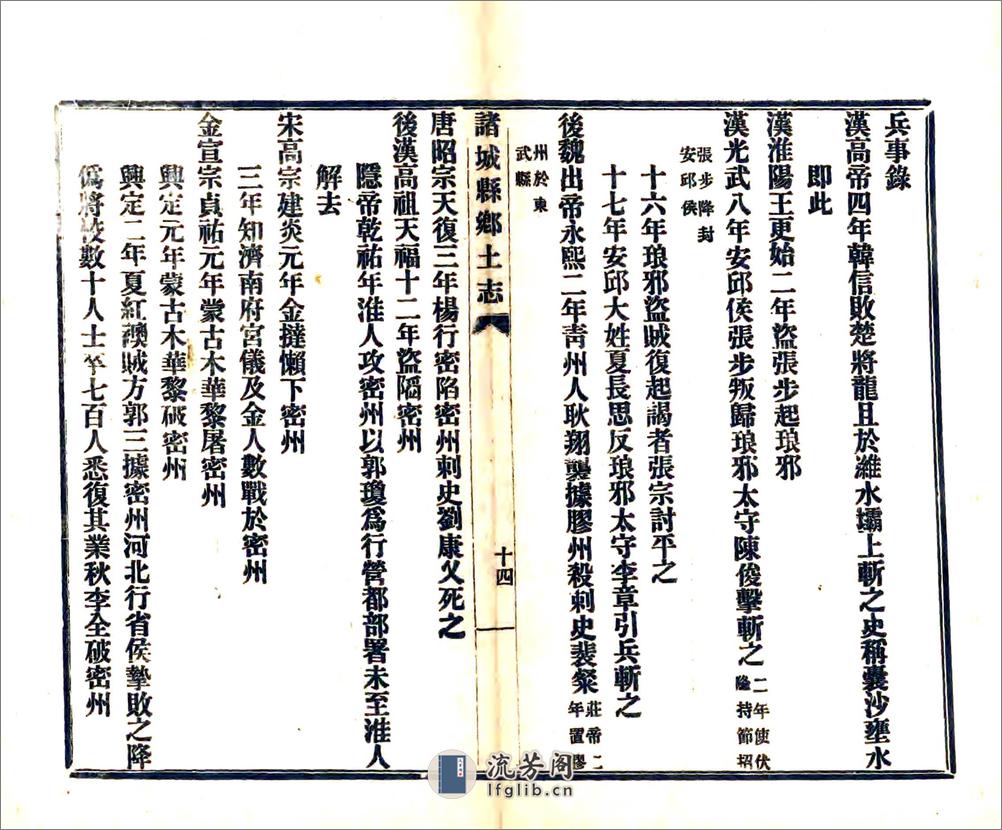 兵事錄
漢高帝四年韓信敗楚將龍且於濰水壩上斬之史稱囊沙壅水
即此
漢淮陽王更始二年盜張步起琅邪
漢光武八年安邱侯張步叛歸琅邪太守陳俊擊斬之二年使伏隆持節招
張步降封安邱侯
十六年琅邪盜賊復起謁者張宗討平之
十七年安邱大姓夏長思反琅邪太守李章引兵斬之
後魏出帝永熙二年靑州人耿翔襲據膠州殺刺史裴粲莊帝二年置膠
州於東武縣
諸城縣鄉土志
十四
唐昭宗天復三年楊行密陷密州刺史劉康乂死之
後漢高祖天福十二年盜陷密州
隱帝乾祐年淮人攻密州以郭瓊爲行營都部署未至淮人
解去
宋高宗建炎元年金撻懶下密州
三年知濟南府宮儀及金人數戰於密州
金宣宗貞祐元年蒙古木華黎屠密州
興定元年蒙古木華黎破密州
興定二年夏紅襖賊方郭三據密州河北行省侯摯敗之降
僞將校數十人士卒七百人悉復其業秋李全破密州
流芳阁
lfglib.cn